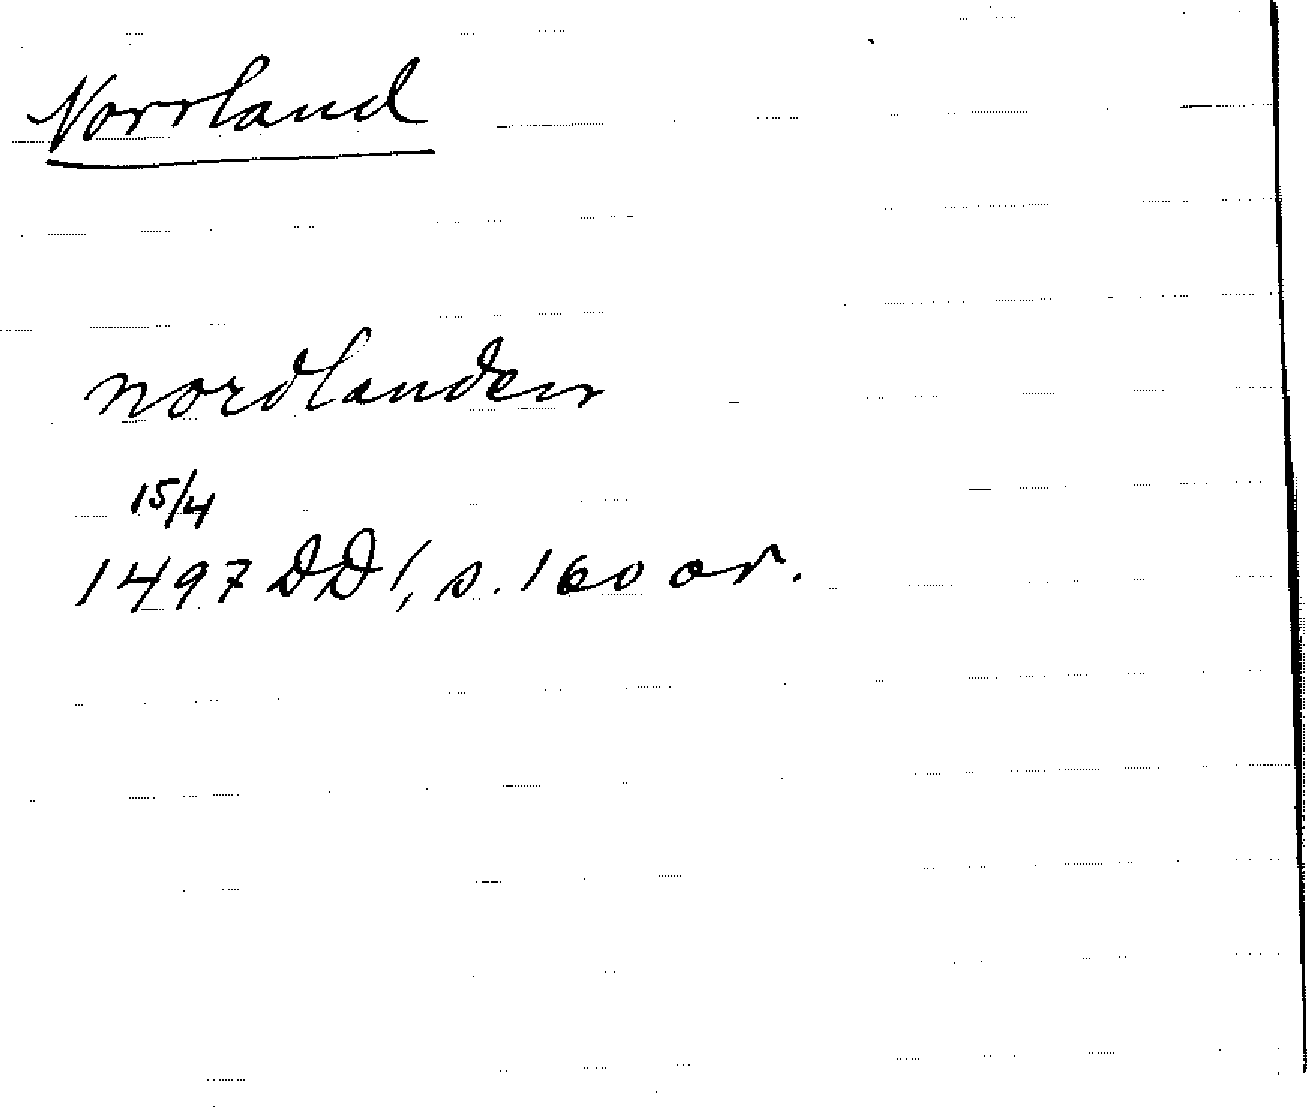 Norrland
nordlanden
15/4
1497 DD 1, s. 160 or.